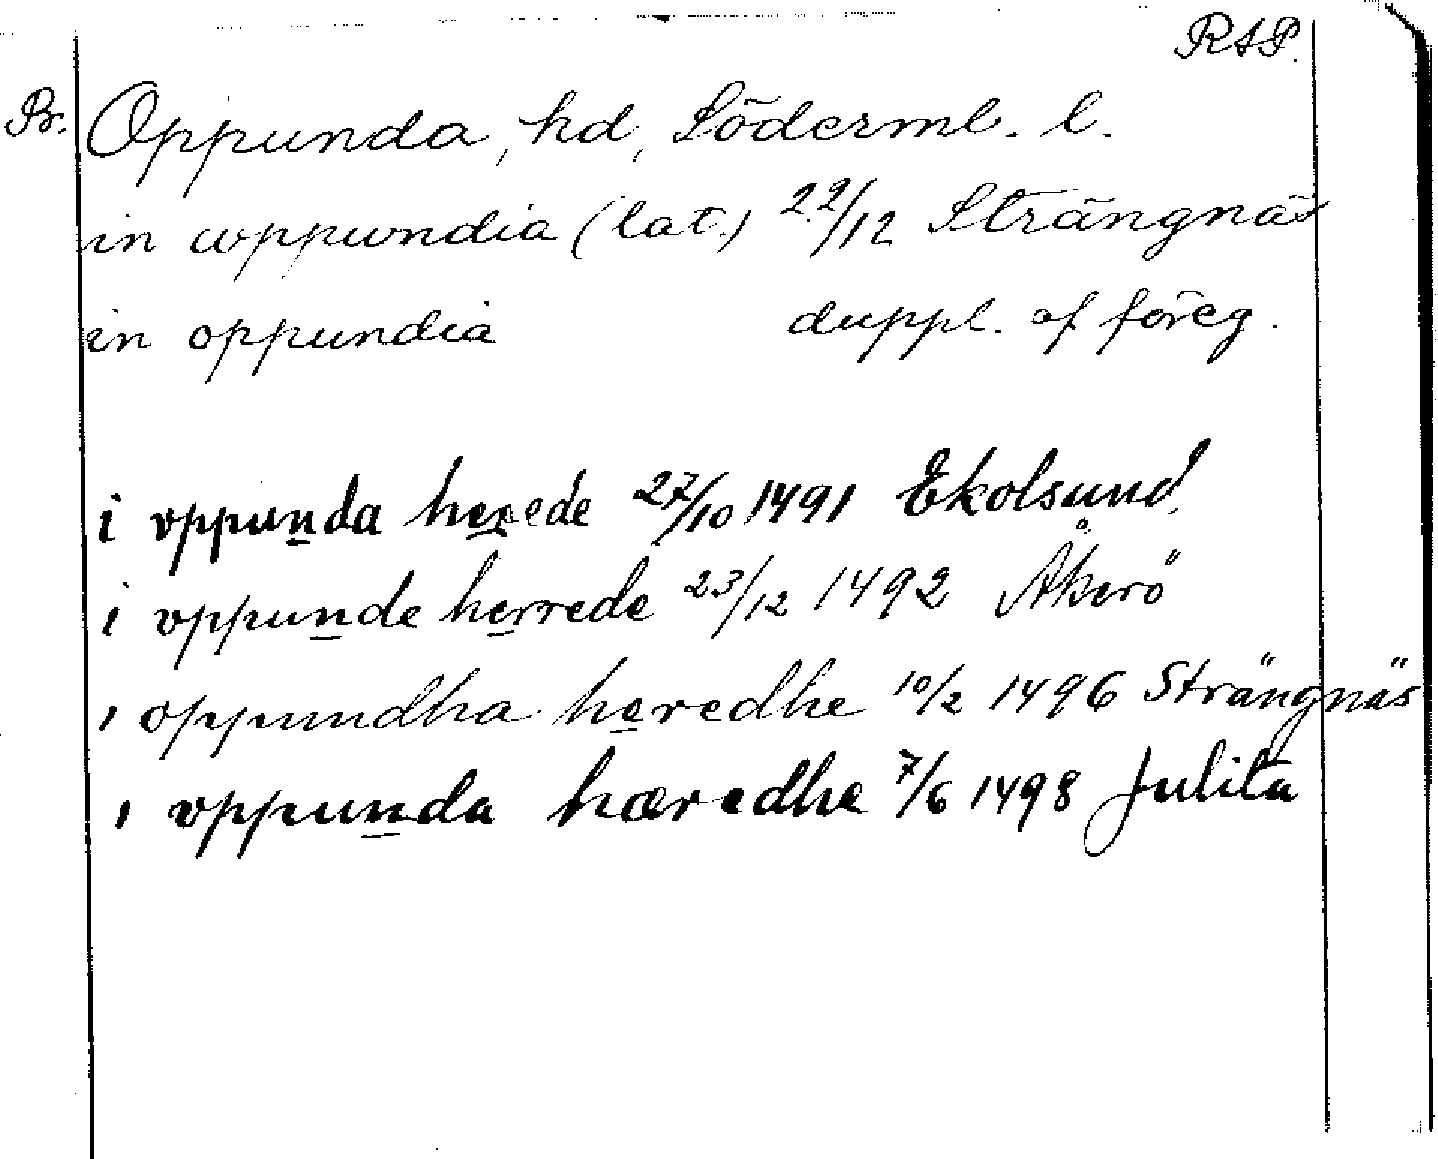 RAP.
Br. Oppunda, hd, Söderml. l.
in woppwndia (lat.) 22/12 Strängnäs
in oppundia duppl. af föreg.
i vppunda herede 27/10 1491 Ekolsund.
i vppunde herrede 23/12 1492 Åkerö
i oppundha heredhe 10/2 1496 Strängnäs
i vppunda hæredhe 7/6 1498 Julita